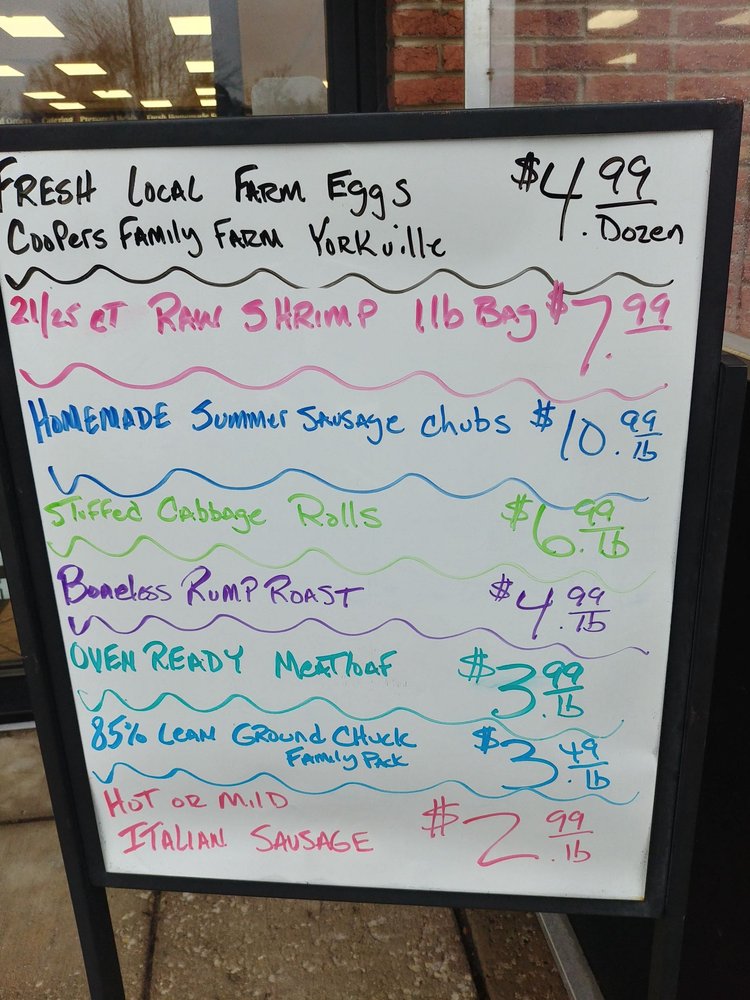 Catering
Fresh Local Farm Eggs $4.99
Coopers Family Farm Yorkville . Dozen
21/25 ct Raw Shrimp 1lb Bag $7.99
Homemade Summer Sausage chubs $10.99 lb
Stuffed Cabbage Rolls $6.99 lb
Boneless Rump Roast $4.99 lb
Oven Ready Meatloaf $3.99 lb
85% Lean Ground Chuck $3.49 lb
Family Pack
Hot or Mild
Italian Sausage $2.99 lb